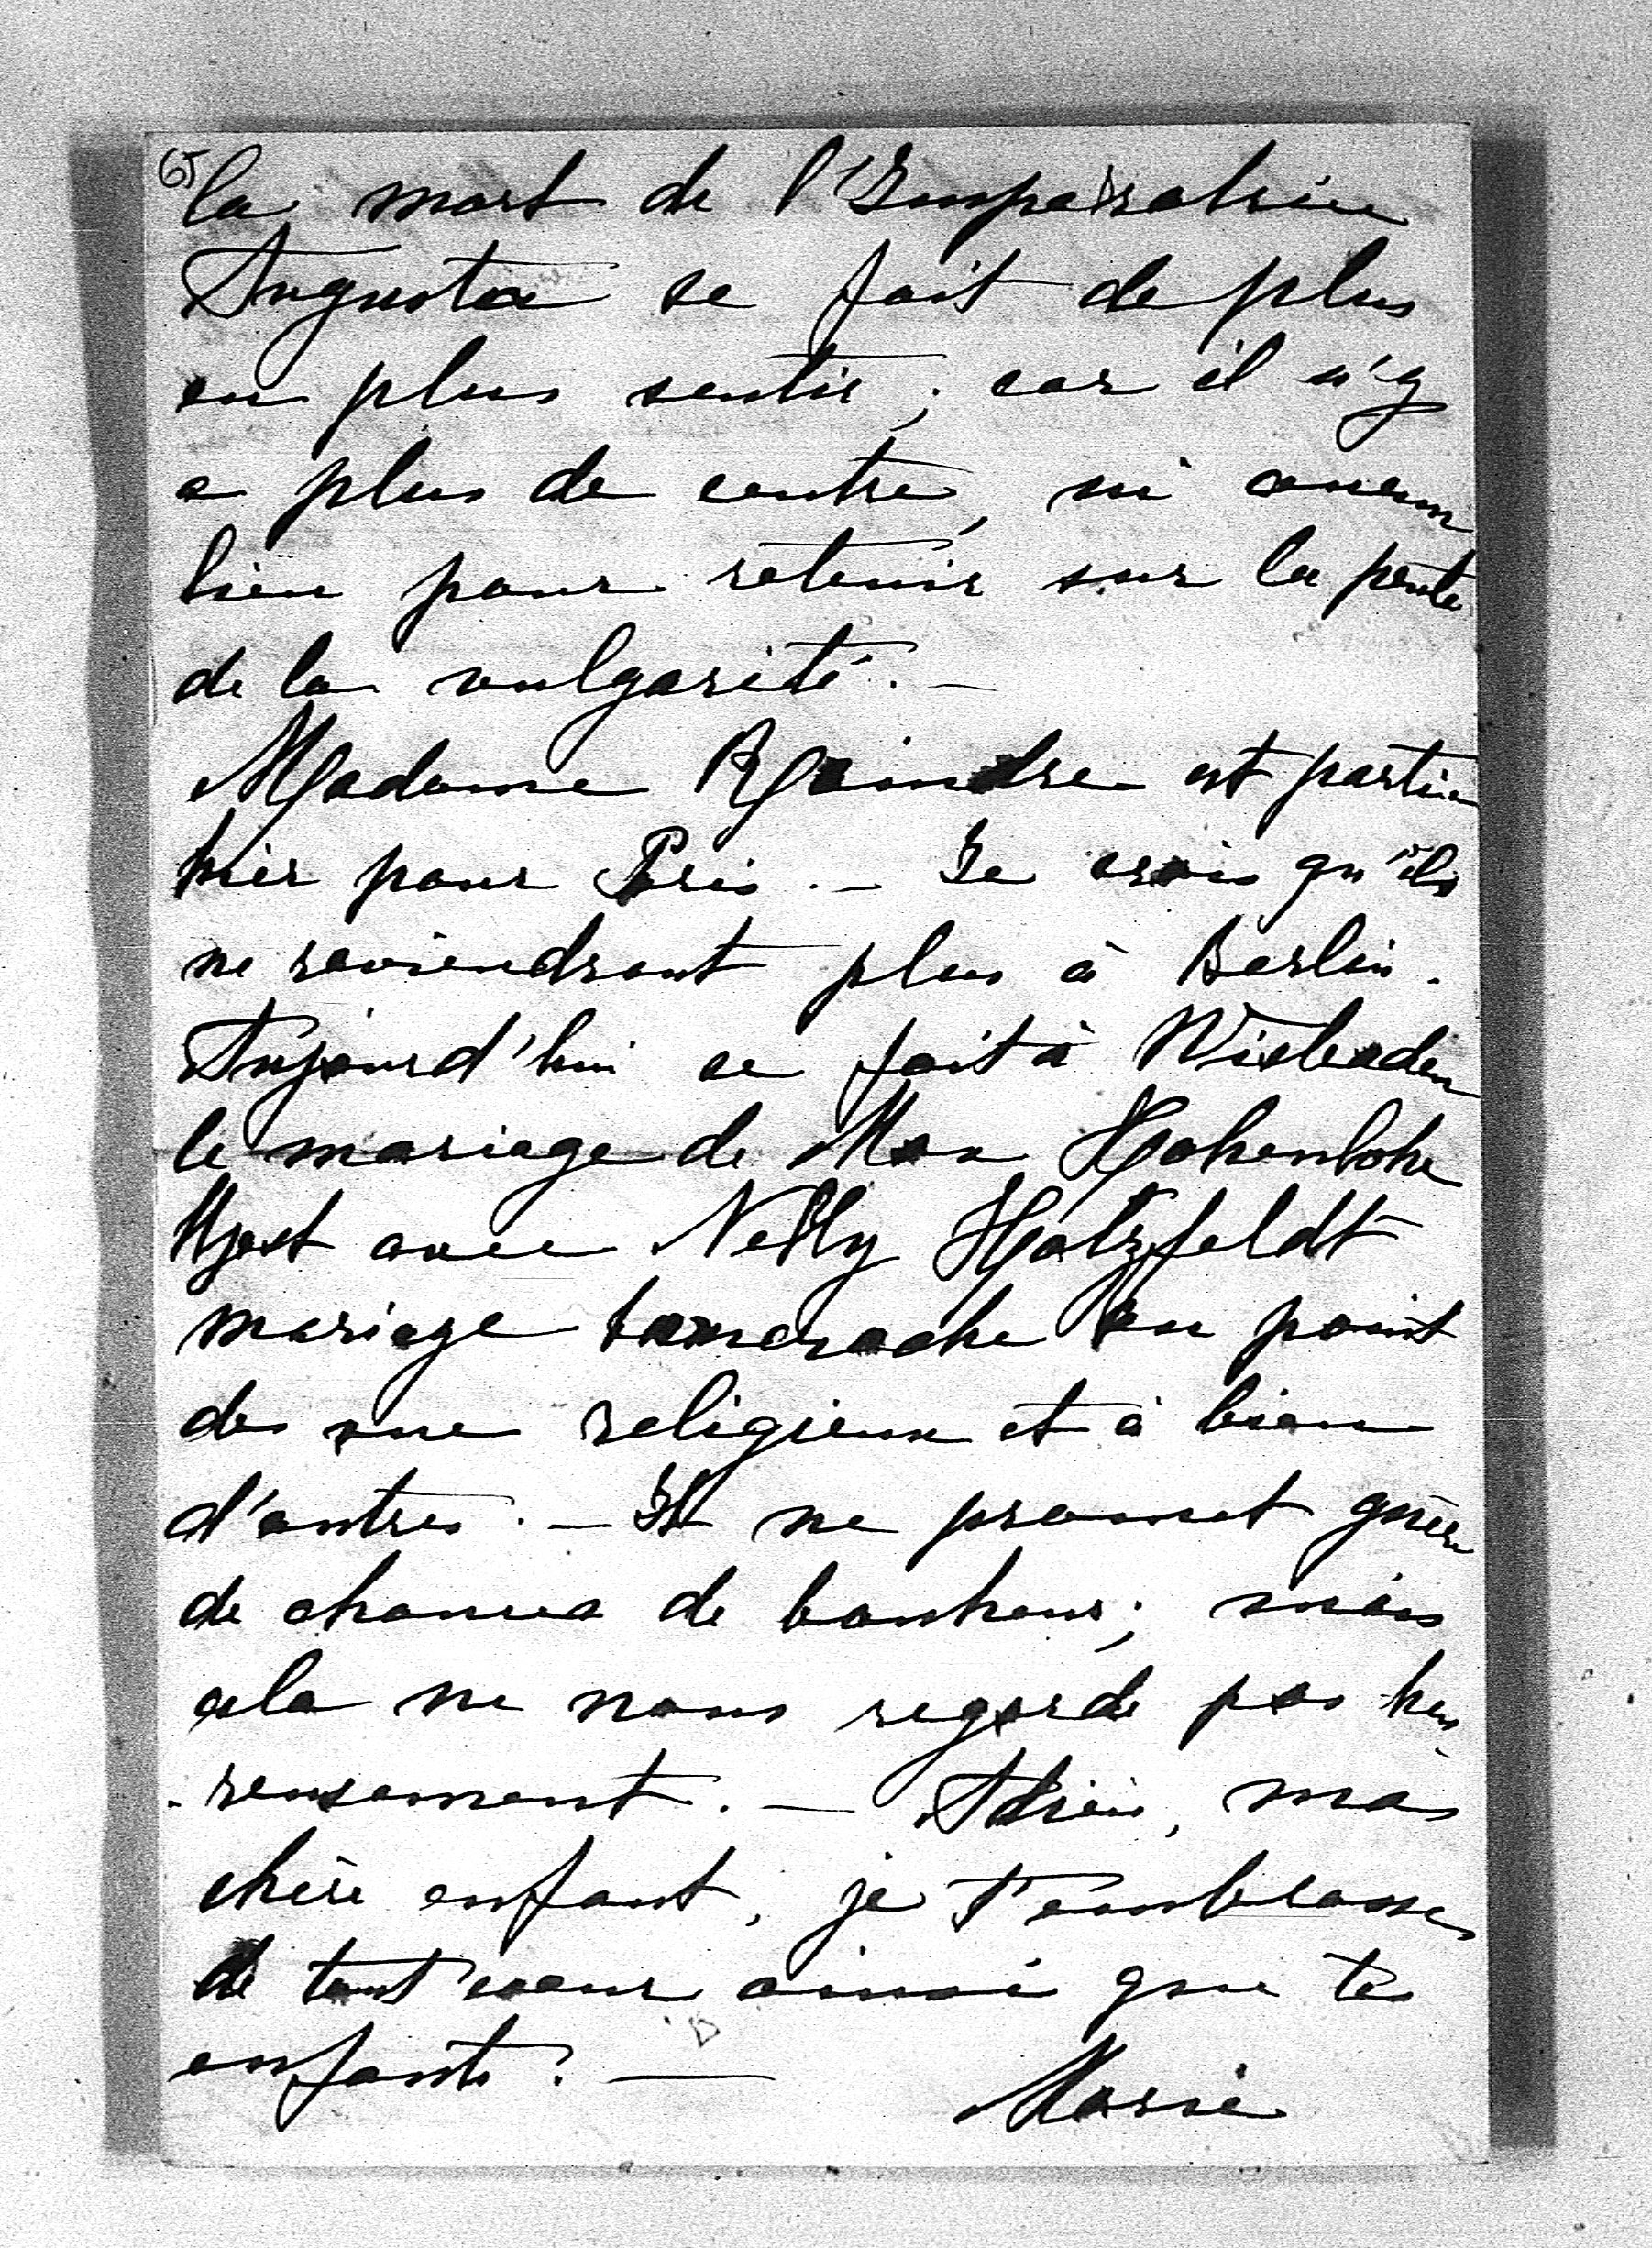 65
la mort de l'Imperatrice
Augusta se fait de plus
en plus sentir; car il n'y
a plus de centre, ni aucun
lien pour retenir sur la pente
de la vulgarité. —
Madame Raindre est partie
hier pour Paris. — Je crois qu'ils
ne reviendront plus à Berlin.
Aujourd'hui se fait à Wiesbaden
le mariage de Max Hohenlohe
Ujest avec Nelly Hatzfeldt
mariage au point
de vue religieux et à bien
d'autres. — Il ne promet guère
de chances de bonheur; mais
cela ne nous regarde pas heu
reusement. — Adieu, ma
chère enfant, je t'embrasse
de tout coeur ainsi que tes
enfants. —
Marie